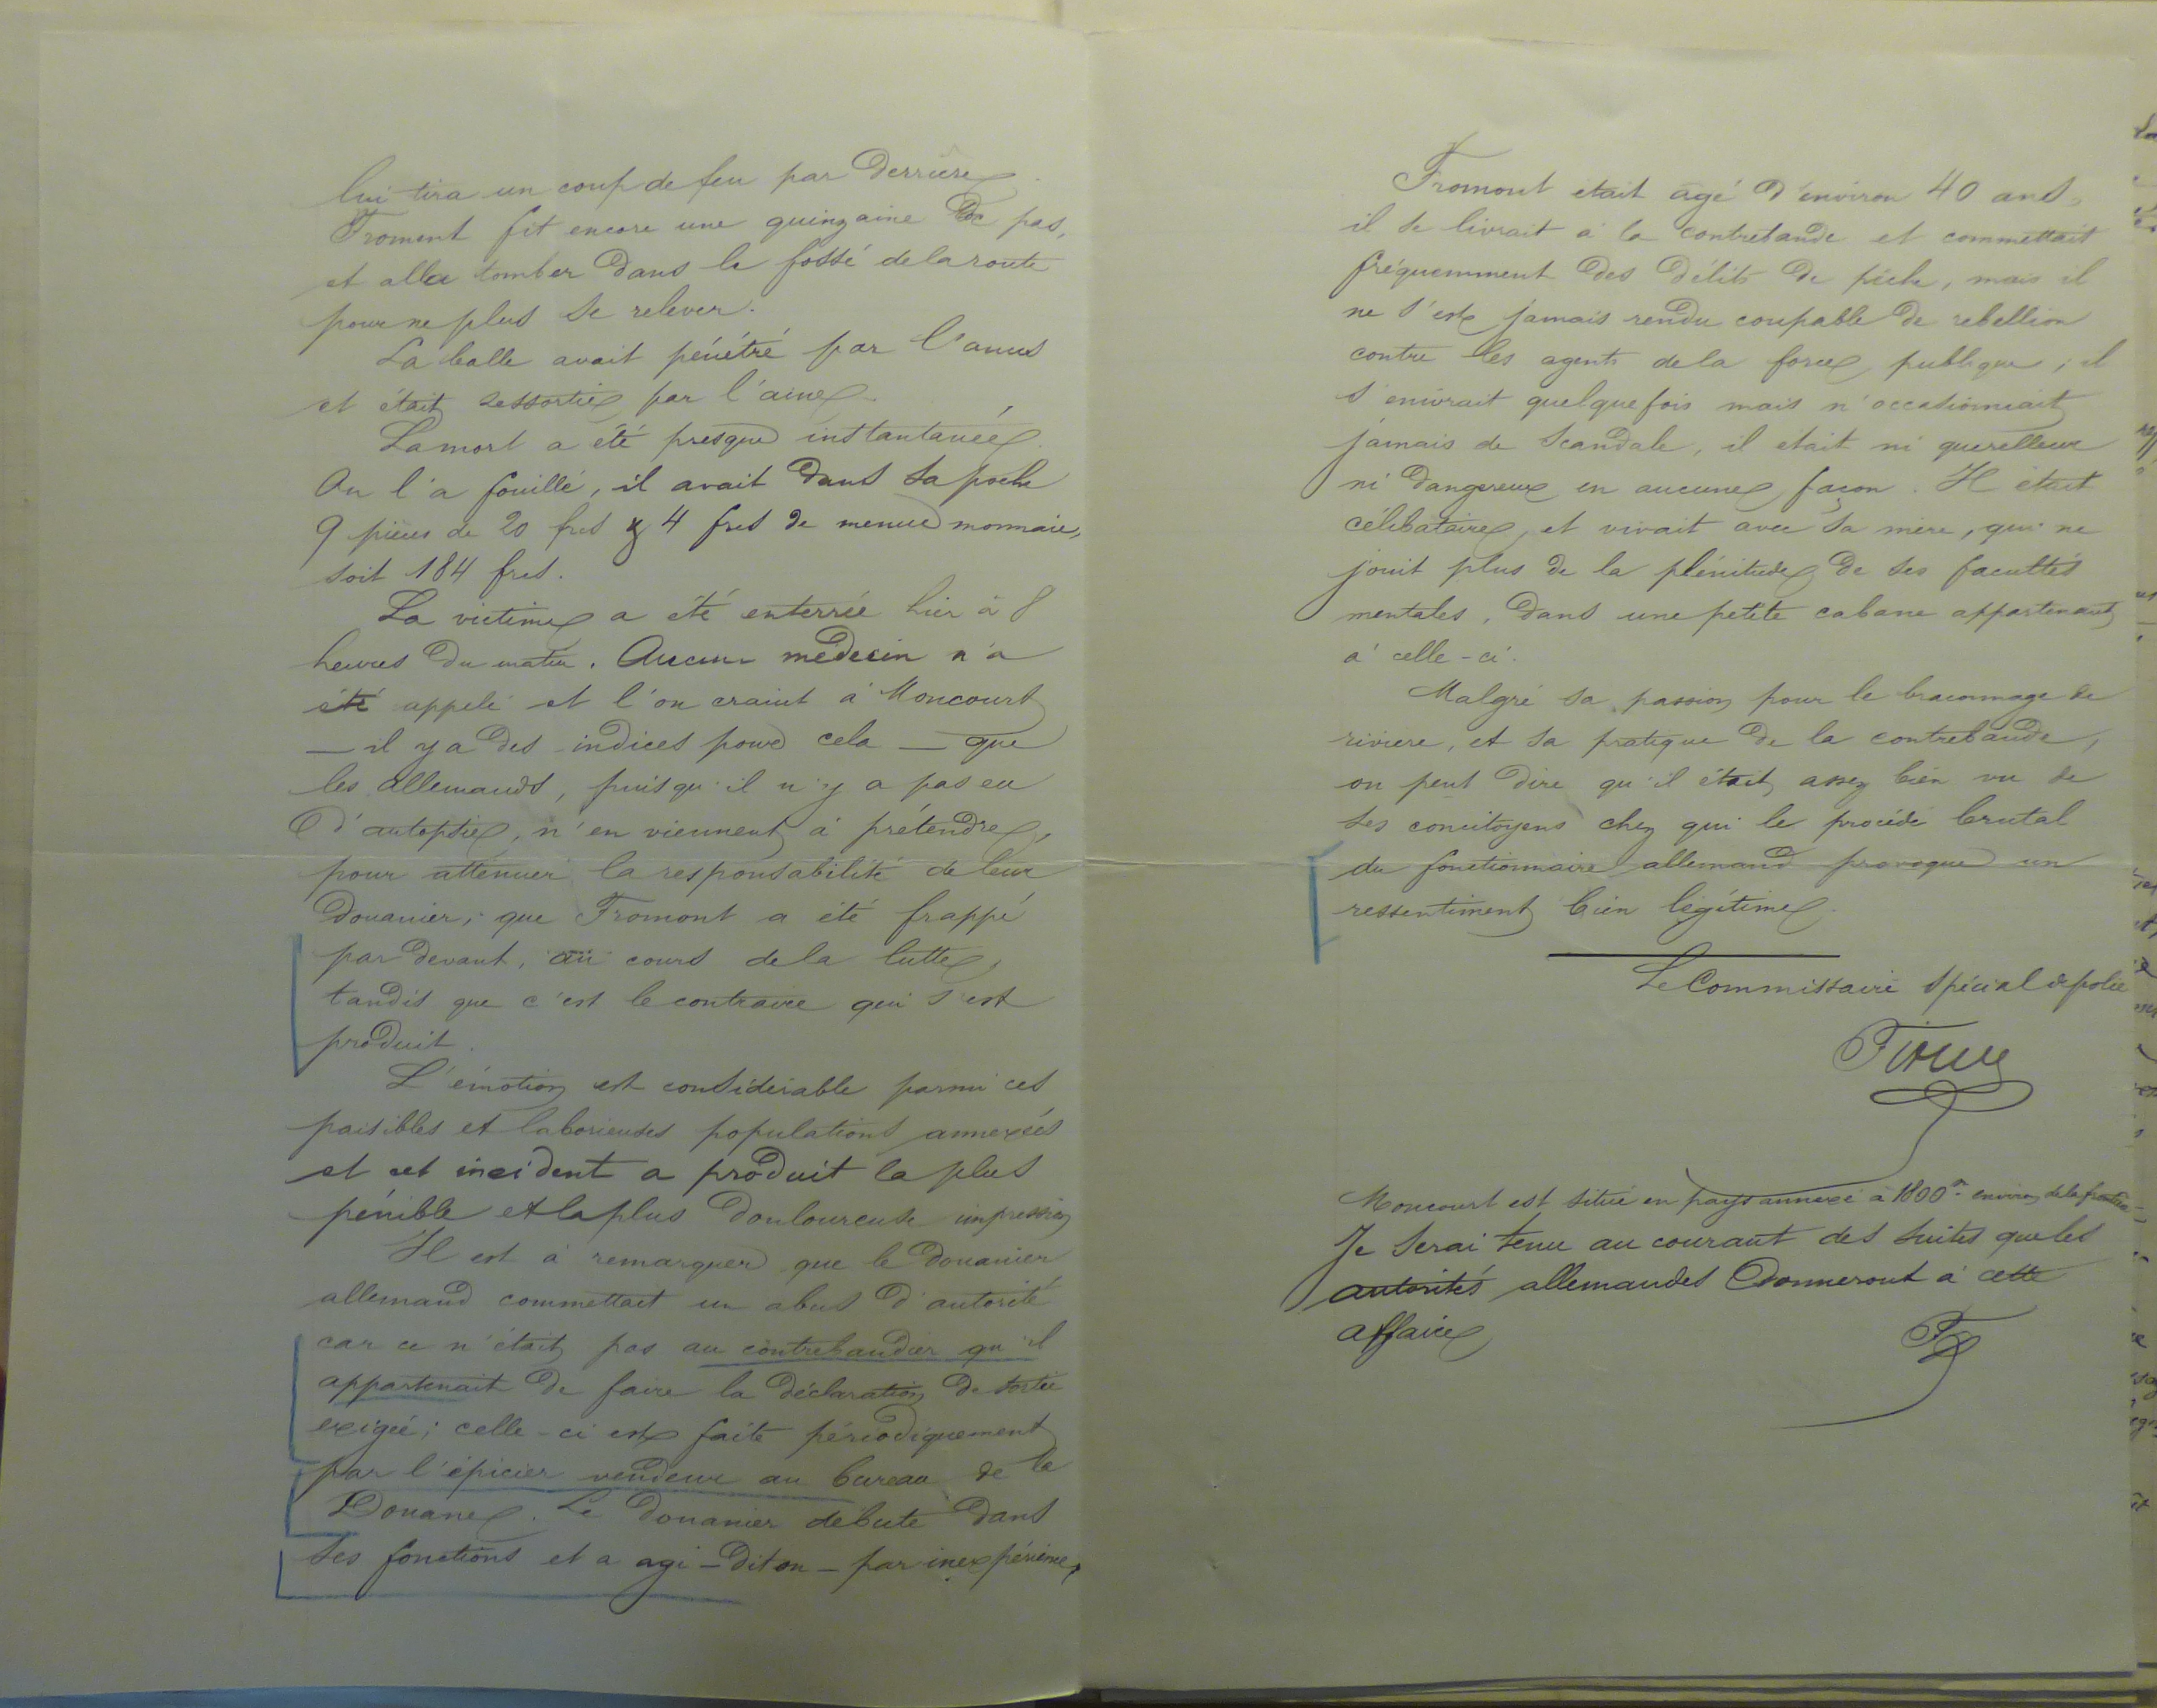 lui tira un coup de feu par derrière.
Froment fit encore une quinzaine de pas,
et alla tomber dans le fossé de la route
pour ne plus se relever.
La balle avait pénétré par l'anus
et était ressortie par l'aine.
La mort a été presque instantanée.
On l'a fouillé, il avait dans sa poche
9 pièces de 20 frcs & 4 frcs de menue monnaie,
soit 184 frcs.
La victime a été enterrée hier à 8
heures du matin. Aucun médecin n'a
été appelé et l'on craint à Moncourt
— il y a des indices pour cela — que
les allemands, puisqu'il n'y a pas eu
d'autopsie, n'en viennent à prétendre,
pour atténuer la responsabilité de leur
douanier, que Fromont a été frappé
par devant, au cours de la lutte,
tandis que c'est le contraire qui s'est
produit.
L'émotion est considérable parmi ces
paisibles et laborieuses populations annexées
et cet incident a produit la plus
pénible et la plus douloureuse impression
Il est à remarquer que le douanier
allemand commettait un abus d'autorité
car ce n'était pas au contrebandier qu'il
appartenait de faire la déclaration de sortie
exigée; celle-ci est faite périodiquement
par l'épicier vendeur au bureau de la
Douane. Le douanier débute dans
ses fonctions et a agi – dit on – par inexpérience,
Fromont était agé d'environ 40 ans.
il se livrait à la contrebande et commettait
fréquemment des délits de pêche, mais il
ne s'est jamais rendu coupable de rebellion
contre les agents de la force publique; il
s'enivrait quelquefois mais n'occasionnait
jamais de scandale, il était ni querelleur
ni dangereux en aucune façon. Il était
célibataire, et vivait avec sa mère, qui ne
jouit plus de la plénitude de ses facultés
mentales, dans une petite cabane appartenant
à celle-ci.
Malgré sa passion pour le braconnage de
rivière, et sa pratique de la contrebande,
on peut dire qu'il était assez bien vu de
ses concitoyens chez qui le procédé brutal
du fonctionnaire allemand provoque un
ressentiment bien légitime.
Le Commissaire spécial de police
Moncourt est situé en pays annexé à 1800m environ de la frontière
Je serai tenu au courant des suites que les
autorités allemandes donneront à cette
affaire